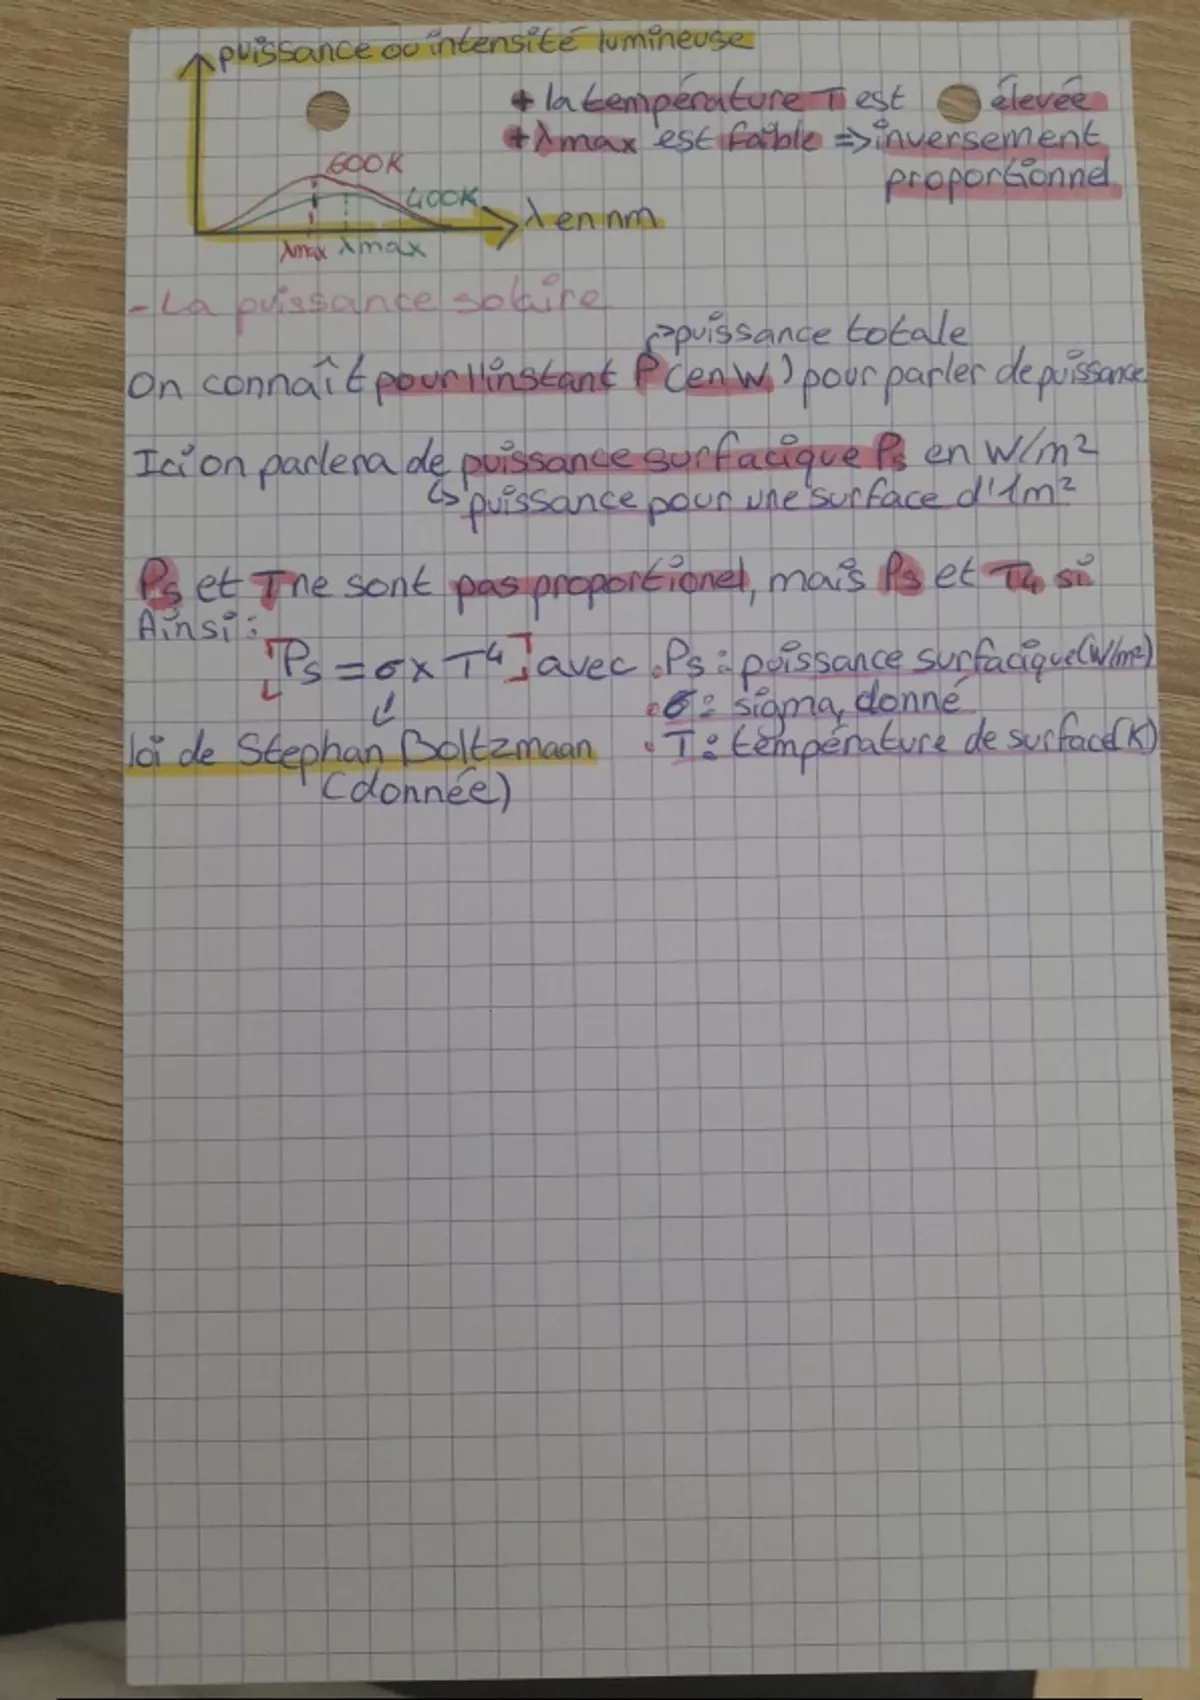 puissance ou intensité lumineuse
+ la température T est élevée
+ λmax est faible => inversement
proportionnel
600K
400K
λ en nm
λmax λmax
- La puissance solaire
↱puissance totale
On connaît pour l'instant P (en W) pour parler de puissance
Ici on parlera de puissance surfacique Ps en W/m²
↳ puissance pour une surface d'1m²
Ps et T ne sont pas proportionel, mais Ps et T4 si
Ainsi :
Ps = σ x T⁴ avec . Ps : puissance surfacique (W/m²)
• σ : sigma, donné
loi de Stephan Boltzmaan • T : température de surface (K)
(donnée)